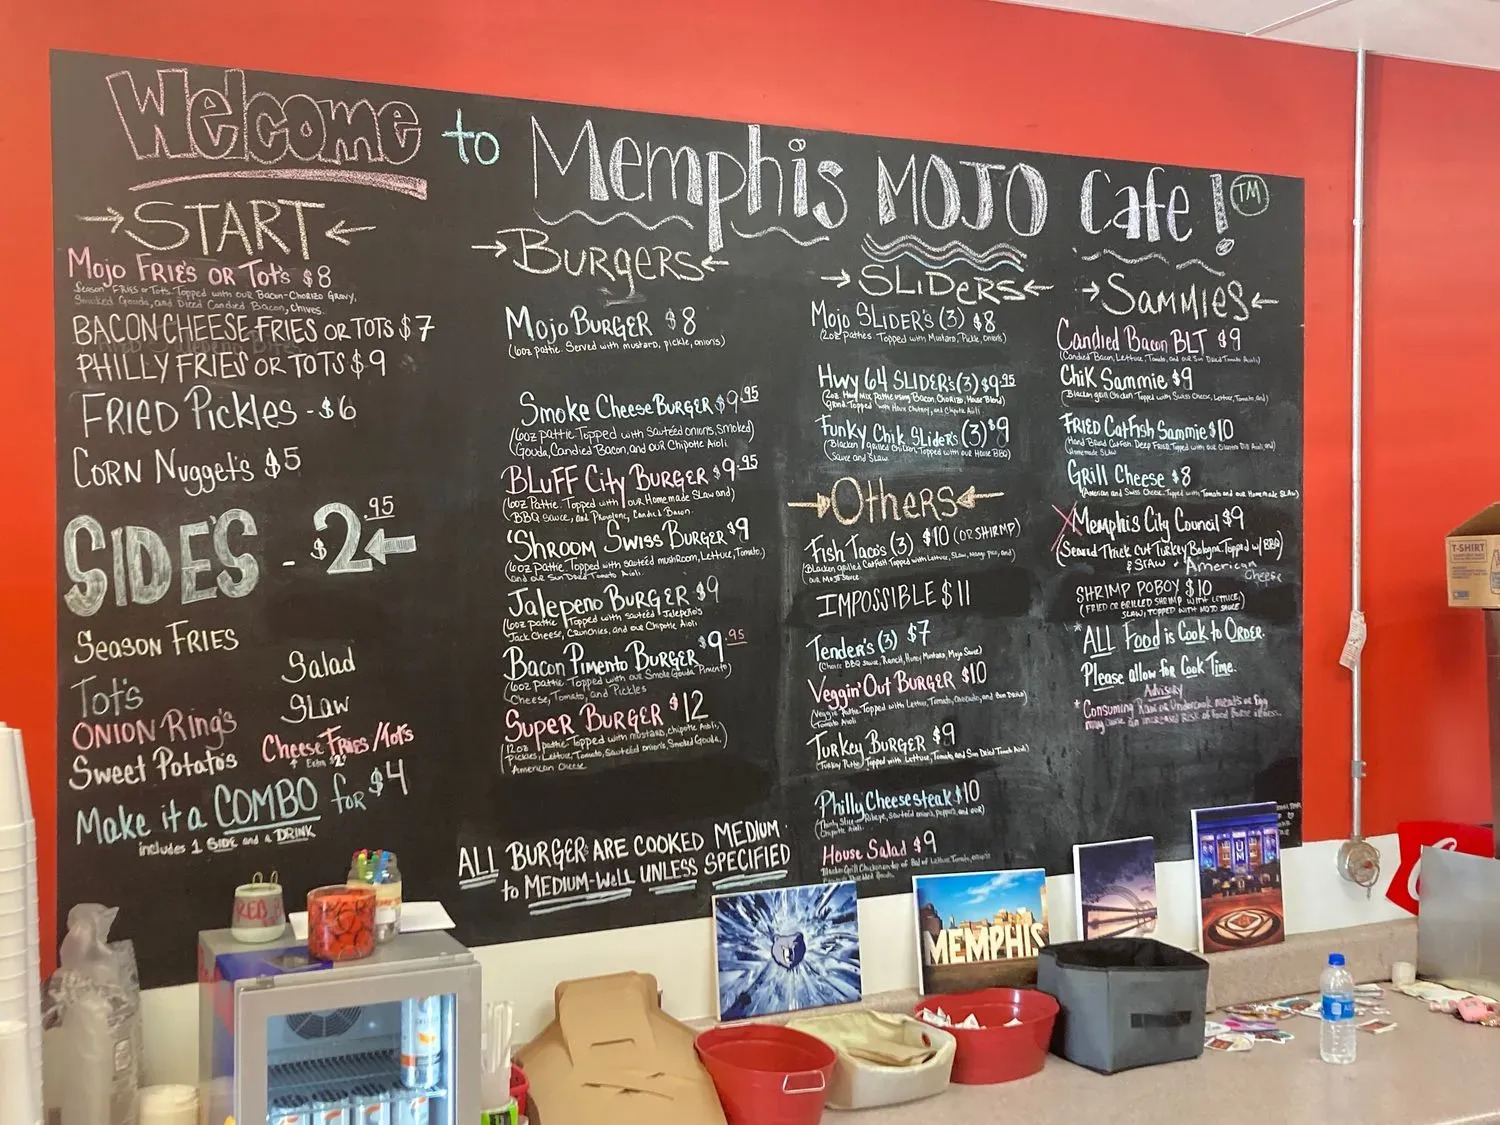 Welcome to Memphis MOJO Cafe! TM
START
Mojo FRIE'S OR Tot's $8
Season FRIES or Tots. Topped with our Bacon-Chorizo Gravy,
Smoked Gouda, and Diced Candied Bacon, Chives.
BACON CHEESE FRIES OR TOTS $7
PHILLY FRIES OR TOTS $9
FRIED Pickles - $6
CORN Nugget's $5
SIDE'S - $2.95
SEASON FRIES
Tot's
ONION Ring's
Sweet Potato's
Salad
SLaw
Cheese Fries/Tots
Make it a COMBO for $4
includes 1 SIDE and a DRINK
BURGERS
Mojo BURGER $8
(6oz pattie. Served with mustard, pickle, onions)
Smoke Cheese BURGER $9.95
(6oz pattie. Topped with Sautéed onions, Smoked)
Gouda, Candied Bacon, and our Chipotle Aioli
BLUFF City BURGER $9.95
(6oz Pattie. Topped with our Homemade Slaw and)
BBQ sauce, and Candied Bacon.
'SHROOM Swiss BURGER $9
(6oz Pattie. Topped with sautéed mushroom, Lettuce, Tomato,)
and our Sun Dried Tomato Aioli
Jalepeno BURGER $9
(6oz Pattie. Topped with sautéed Jalepeño's
Jack Cheese, Crunchies, and our Chipotle Aioli
Bacon Pimento BURGER $9.95
(6oz Pattie. Topped with our Smoke Gouda Pimento)
Cheese, Tomato, and Pickles
SUPER BURGER $12
(12oz pattie. Topped with mustard, chipotle Aioli,
Pickles, Lettuce, Tomato, Sautéed onions, Smoked Gouda,
American Cheese
ALL BURGERS ARE COOKED MEDIUM
to MEDIUM-WELL UNLESS SPECIFIED
SLIDERS
Mojo SLIDER'S (3) $8
(2oz patties. Topped with Mustard, Pickle, Onions)
Hwy 64 SLIDER's (3) $9.95
Funky Chik SLider's (3) $9
(Blacken grilled Chicken Topped with our House BBQ)
Sauce and Slaw
Others
Fish Taco's (3) $10 (OR SHIRMP)
Blacken grilled Catfish Topped with Lettuce, Slaw, Mango pico, and)
our Mojo Sauce
IMPOSSIBLE $11
Tender's (3) $7
(Choice BBQ sauce, Ranch, Honey Mustard, Mojo Sauce)
Veggin' Out BURGER $10
Tomato Aioli
Turkey BURGER $9
(Turkey Pattie Topped with Lettuce, Tomato, and Sun Dried Tomato Aioli)
Philly Cheesesteak $10
Chipotle Aioli
House Salad $9
SAMMIES
Candied Bacon BLT $9
(Candied Bacon, Lettuce, Tomato, and our Sun Dried Tomato Aioli)
Chik Sammie $9
(Blacken grill Chicken Topped with Swiss Cheese, Lettuce, Tomato, and)
FRIED Catfish Sammie $10
Homemade Slaw
Grill Cheese $8
(American and Swiss Cheese. Topped with Tomato and our Homemade SLAW)
Memphis City Council $9
(Seared Thick Cut Turkey Bologna Topped w/ BBQ)
& SLAW + American
Cheese
SHRIMP POBOY $10
(FRIED OR GRILLED SHRIMP WITH LETTUCE,
SLAW, TOPPED WITH MOJO SAUCE)
* ALL Food is Cook to ORDER.
Please allow for Cook Time.
Advisory
* Consuming Raw or Undercook meats or Egg
may cause an increased Risk of food borne illness.
MEMPHIS
T-SHIRT
RED
UM